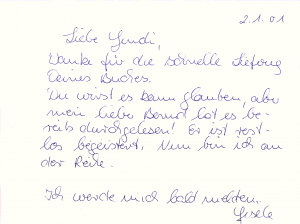 2.1.01
Liebe Gundi,
Danke für die schnelle Lieferung
Deines Buches.
Du wirst es kaum glauben, aber
mein lieber Bernd hat es be-
reits durchgelesen! Er ist rest-
los begeistert. Nun bin ich an
der Reihe.
Ich werde mich bald melden.
Gisela